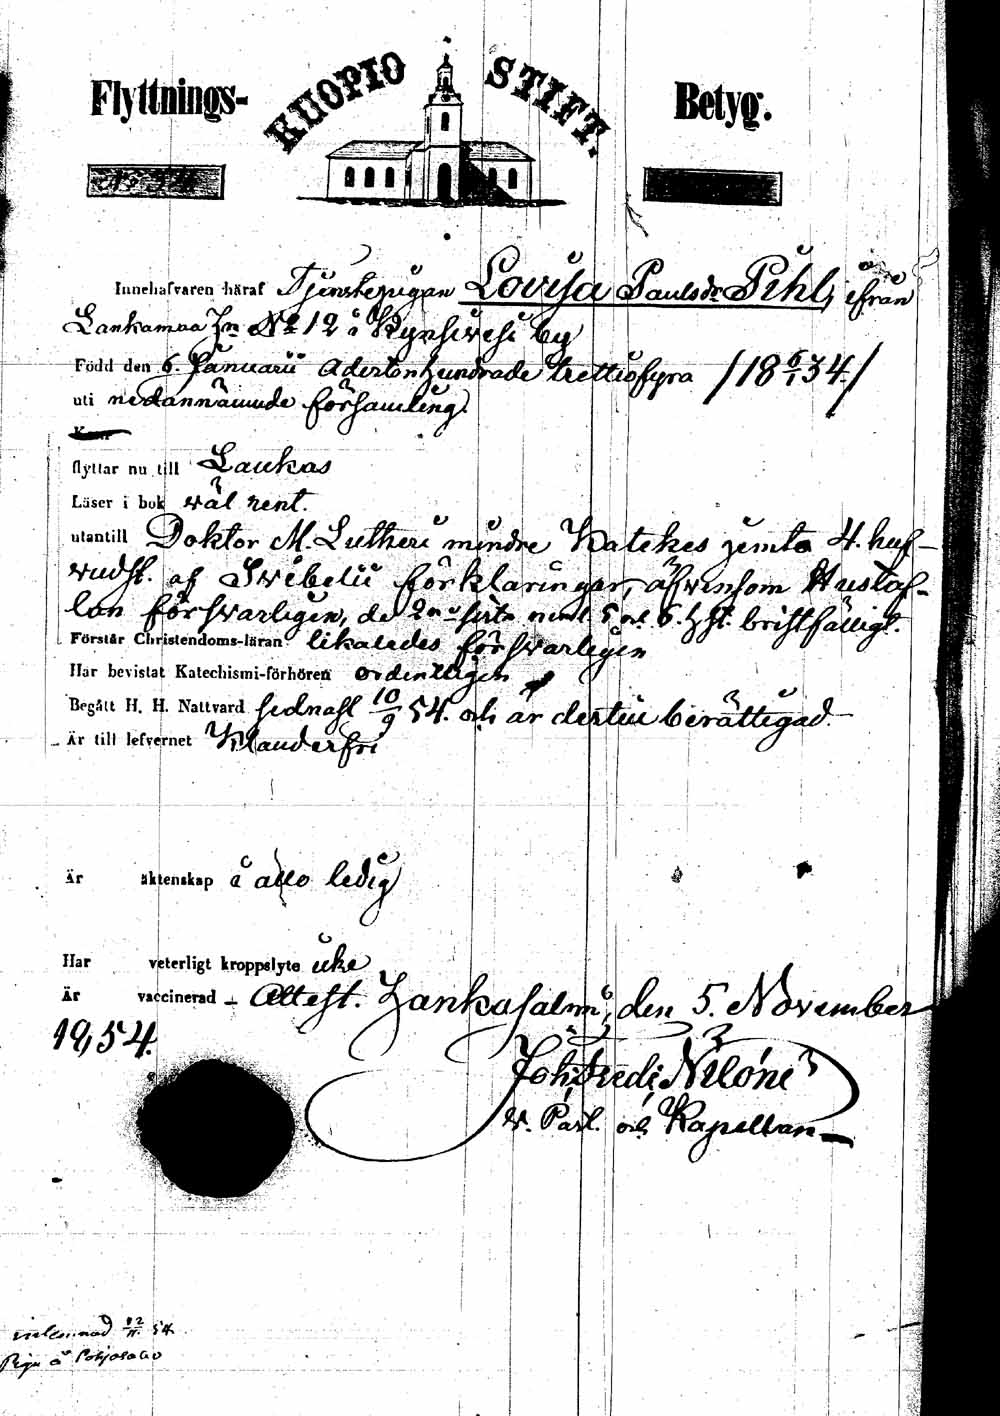 Flyttnings- KUOPIO STIFT. Betyg.
Innehafvaren häraf Tjenstepigan Lovisa Paulsdr Pihl, ifrån
Lankamaa Hn No 12 å Kynsivesi by
Född den 6. Januarii Adertonhundrade trettiofyra /18 6/1 34./
uti nedannämnde församling.
flyttar nu till Laukas
Läser i bok wäl rent.
utantill Doktor M. Lutheri mindre Katekes jemte 4. huf-
wudst. af Svebelii förklaringar, äfwensom Hustaf-
lan försvarligen, de 2ne sista neml. 5 o. 6. hst. bristfälligt.
Förstår Christendoms-läran likaledes försvarligen
Har bevistat Katechismi-förhören ordentligen
Begått H. H. Nattvard sednast 10/9 54. och är dertill berättigad
Är till lefvernet Klanderfri
Är äktenskap i allo ledig
Har veterligt kroppslyte icke
Är vaccinerad – Attest. Hankasalmi, den 5. November
1854.
Joh. Fredr. Nilóni
v. Past. och Kapellan
inlemnad 12/11 54
Piga å Pohjosaho